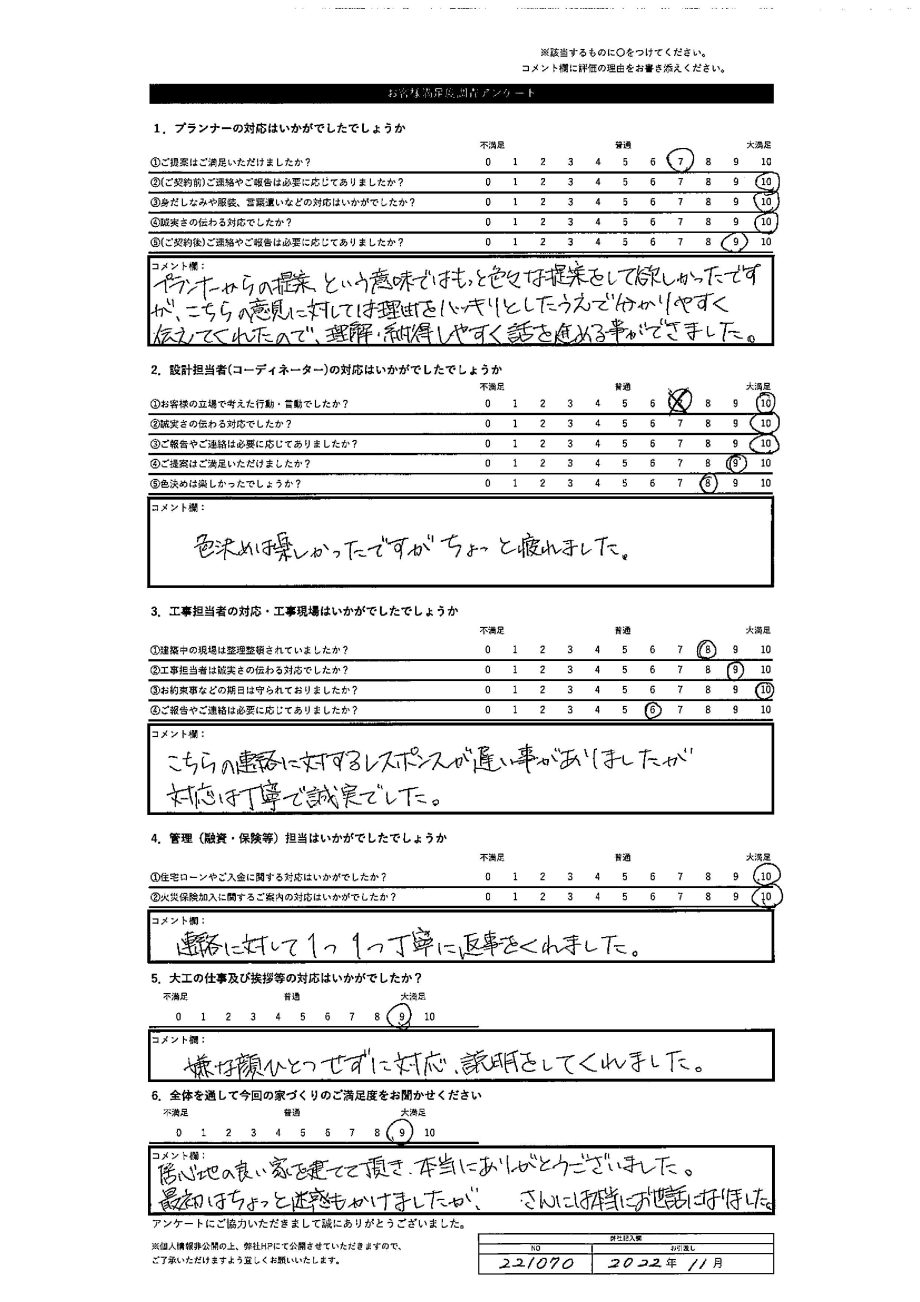 ※該当するものに〇をつけてください。
コメント欄に評価の理由をお書き添えください。
お客様満足度調査アンケート
1. プランナーの対応はいかがでしたでしょうか
不満足 普通 大満足
①ご提案はご満足いただけましたか? 0 1 2 3 4 5 6 7 8 9 10
②(ご契約前)ご連絡やご報告は必要に応じてありましたか? 0 1 2 3 4 5 6 7 8 9 10
③身だしなみや服装、言葉遣いなどの対応はいかがでしたか? 0 1 2 3 4 5 6 7 8 9 10
④誠実さの伝わる対応でしたか? 0 1 2 3 4 5 6 7 8 9 10
⑤(ご契約後)ご連絡やご報告は必要に応じてありましたか? 0 1 2 3 4 5 6 7 8 9 10
コメント欄:
プランナーからの提案、という意味ではもっと色々な提案をして欲しかったです
が、こちらの意見に対しては理由をハッキリとしたうえで分かりやすく
伝えてくれたので、理解・納得しやすく話を進める事ができました。
2. 設計担当者(コーディネーター)の対応はいかがでしたでしょうか
不満足 普通 大満足
①お客様の立場で考えた行動・言動でしたか? 0 1 2 3 4 5 6 7 8 9 10
②誠実さの伝わる対応でしたか? 0 1 2 3 4 5 6 7 8 9 10
③ご報告やご連絡は必要に応じてありましたか? 0 1 2 3 4 5 6 7 8 9 10
④ご提案はご満足いただけましたか? 0 1 2 3 4 5 6 7 8 9 10
⑤色決めは楽しかったでしょうか? 0 1 2 3 4 5 6 7 8 9 10
コメント欄:
色決めは楽しかったですがちょっと疲れました。
3. 工事担当者の対応・工事現場はいかがでしたでしょうか
不満足 普通 大満足
①建築中の現場は整理整頓されていましたか? 0 1 2 3 4 5 6 7 8 9 10
②工事担当者は誠実さの伝わる対応でしたか? 0 1 2 3 4 5 6 7 8 9 10
③お約束事などの期日は守られておりましたか? 0 1 2 3 4 5 6 7 8 9 10
④ご報告やご連絡は必要に応じてありましたか? 0 1 2 3 4 5 6 7 8 9 10
コメント欄:
こちらの連絡に対するレスポンスが遅い事がありましたが
対応は丁寧で誠実でした。
4. 管理(融資・保険等)担当はいかがでしたでしょうか
不満足 普通 大満足
①住宅ローンやご入金に関する対応はいかがでしたか? 0 1 2 3 4 5 6 7 8 9 10
②火災保険加入に関するご案内の対応はいかがでしたか? 0 1 2 3 4 5 6 7 8 9 10
コメント欄:
連絡に対して1つ1つ丁寧に返事をくれました。
5. 大工の仕事及び挨拶等の対応はいかがでしたか?
不満足 普通 大満足
0 1 2 3 4 5 6 7 8 9 10
コメント欄:
嫌な顔ひとつせずに対応、説明をしてくれました。
6. 全体を通して今回の家づくりのご満足度をお聞かせください
不満足 普通 大満足
0 1 2 3 4 5 6 7 8 9 10
コメント欄:
居心地の良い家を建てて頂き、本当にありがとうございました。
最初はちょっと迷惑もかけましたが、 さんには本当にお世話になりました。
アンケートにご協力いただきまして誠にありがとうございました。
※個人情報非公開の上、弊社HPにて公開させていただきますので、
ご了承いただけますよう宜しくお願いいたします。
弊社記入欄
NO お引渡し
221070 2022年 11月